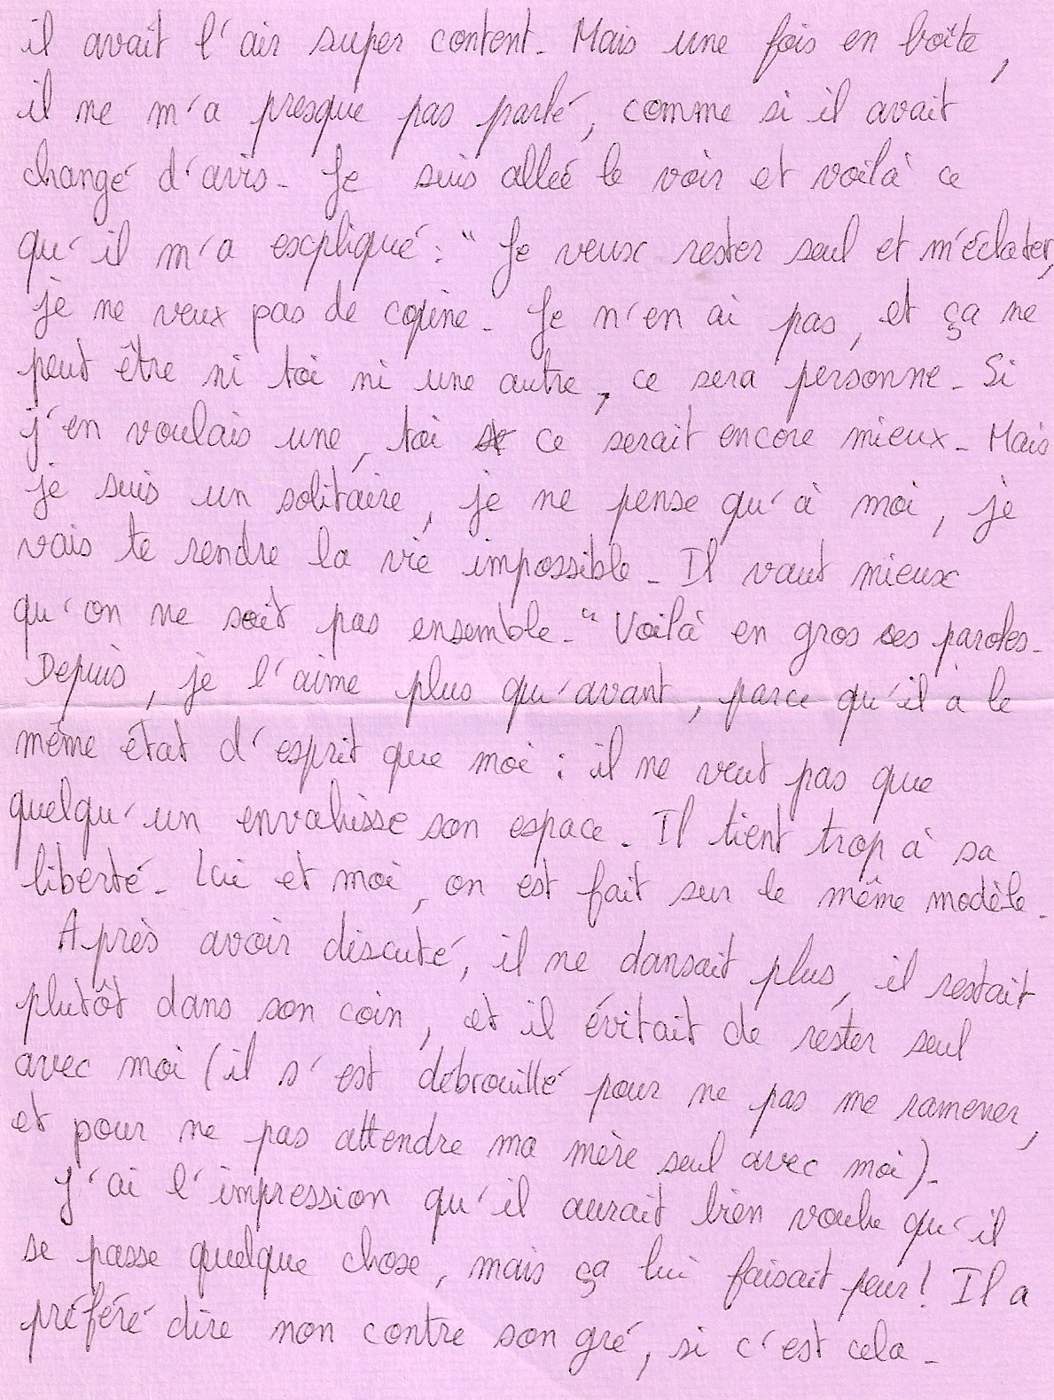 il avait l'air super content. Mais une fois en boîte,
il ne m'a presque pas parlé, comme si il avait
changé d'avis. Je suis alleé le voir et voilà ce
qu'il m'a expliqué : " Je veux rester seul et m'éclater,
je ne veux pas de copine. Je n'en ai pas, et ça ne
peut être ni toi ni une autre, ce sera personne. Si
j'en voulais une, toi ce serait encore mieux. Mais
je suis un solitaire, je ne pense qu'à moi, je
vais te rendre la vie impossible. Il vaut mieux
qu'on ne soit pas ensemble." Voilà en gros ses paroles.
Depuis, je l'aime plus qu'avant, parce qu'il a le
même état d'esprit que moi : il ne veut pas que
quelqu'un envahisse son espace. Il tient trop à sa
liberté. Lui et moi, on est fait sur le même modèle.
Après avoir discuté, il ne dansait plus, il restait
plutôt dans son coin, et il évitait de rester seul
avec moi (il s'est débrouillé pour ne pas me ramener,
et pour ne pas attendre ma mère seul avec moi).
J'ai l'impression qu'il aurait bien voulu qu'il
se passe quelque chose, mais ça lui faisait peur ! Il a
préféré dire non contre son gré, si c'est cela.